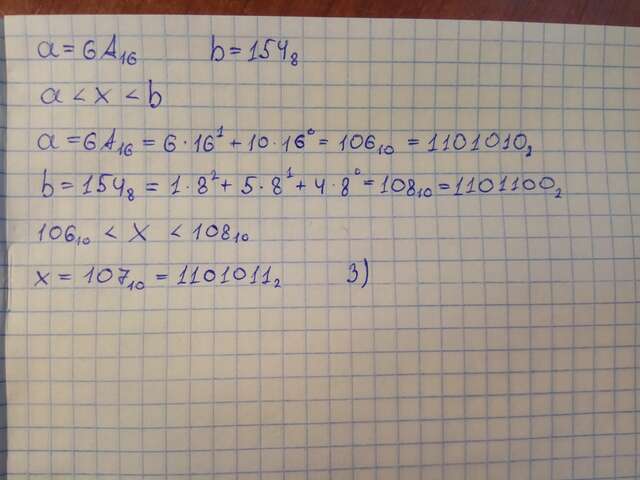 a = 6A₁₆ b = 154₈
a < x < b
a = 6A₁₆ = 6 · 16¹ + 10 · 16⁰ = 106₁₀ = 1101010₂
b = 154₈ = 1 · 8² + 5 · 8¹ + 4 · 8⁰ = 108₁₀ = 1101100₂
106₁₀ < x < 108₁₀
x = 107₁₀ = 1101011₂ 3)